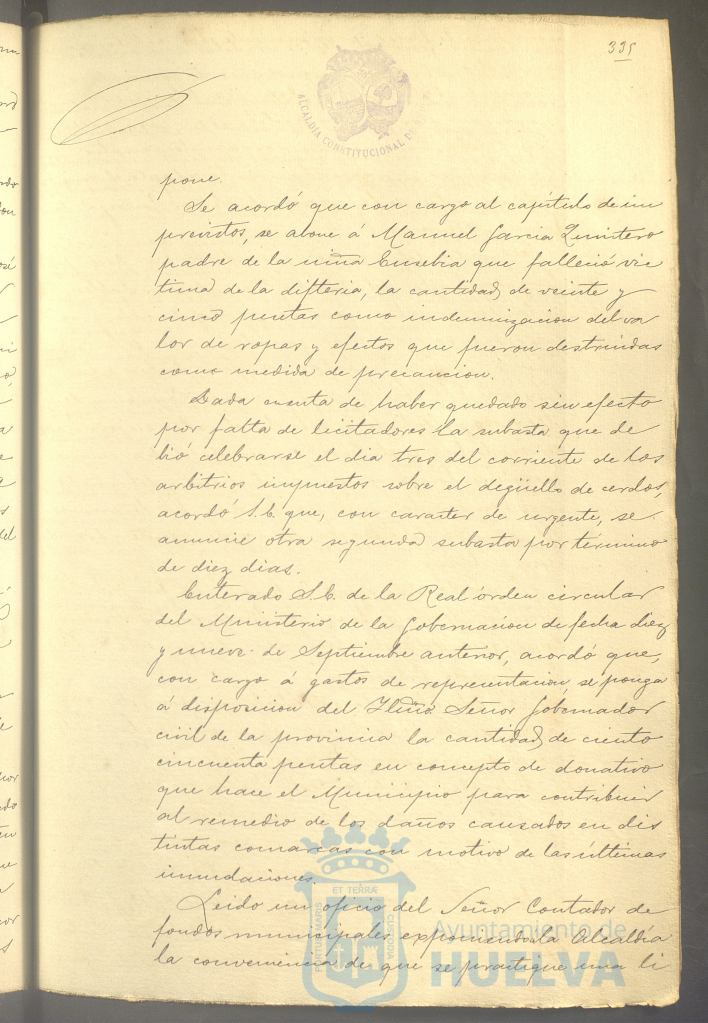 335
ALCALDIA CONSTITUCIONAL D
pone.
Se acordó que con cargo al capítulo de im
previstos, se abone á Manuel Garcia Quintero
padre de la niña Eusebia que falleció víc
tima de la difteria, la cantidad de veinte y
cinco pesetas como indemnizacion del va
lor de ropas y efectos que fueron destruidas
como medida de precaucion.
Dada cuenta de haber quedado sin efecto
por falta de licitadores la subasta que de
bió celebrarse el dia tres del corriente de los
arbitrios impuestos sobre el degüello de cerdos,
acordó S.C. que, con caracter de urgente, se
anuncie otra segunda subasta por término
de diez dias.
Enterado S.C. de la Real órden circular
del Ministerio de la Gobernacion de fecha diez
y nueve de Septiembre anterior, acordó que,
con cargo á gastos de representacion, se ponga
á disposicion del Iltmo Señor Gobernador
civil de la provincia la cantidad de ciento
cincuenta pesetas en concepto de donativo
que hace el Municipio para contribuir
al remedio de los daños causados en dis
tintas comarcas con motivo de las últimas
inundaciones.
Leido un oficio del Señor Contador de
fondos municipales exponiendo á la Alcaldía
la conveniencia de que se practique una li
PORTUS MARIS ET TERRÆ CUSTODIA
Ayuntamiento de
HUELVA